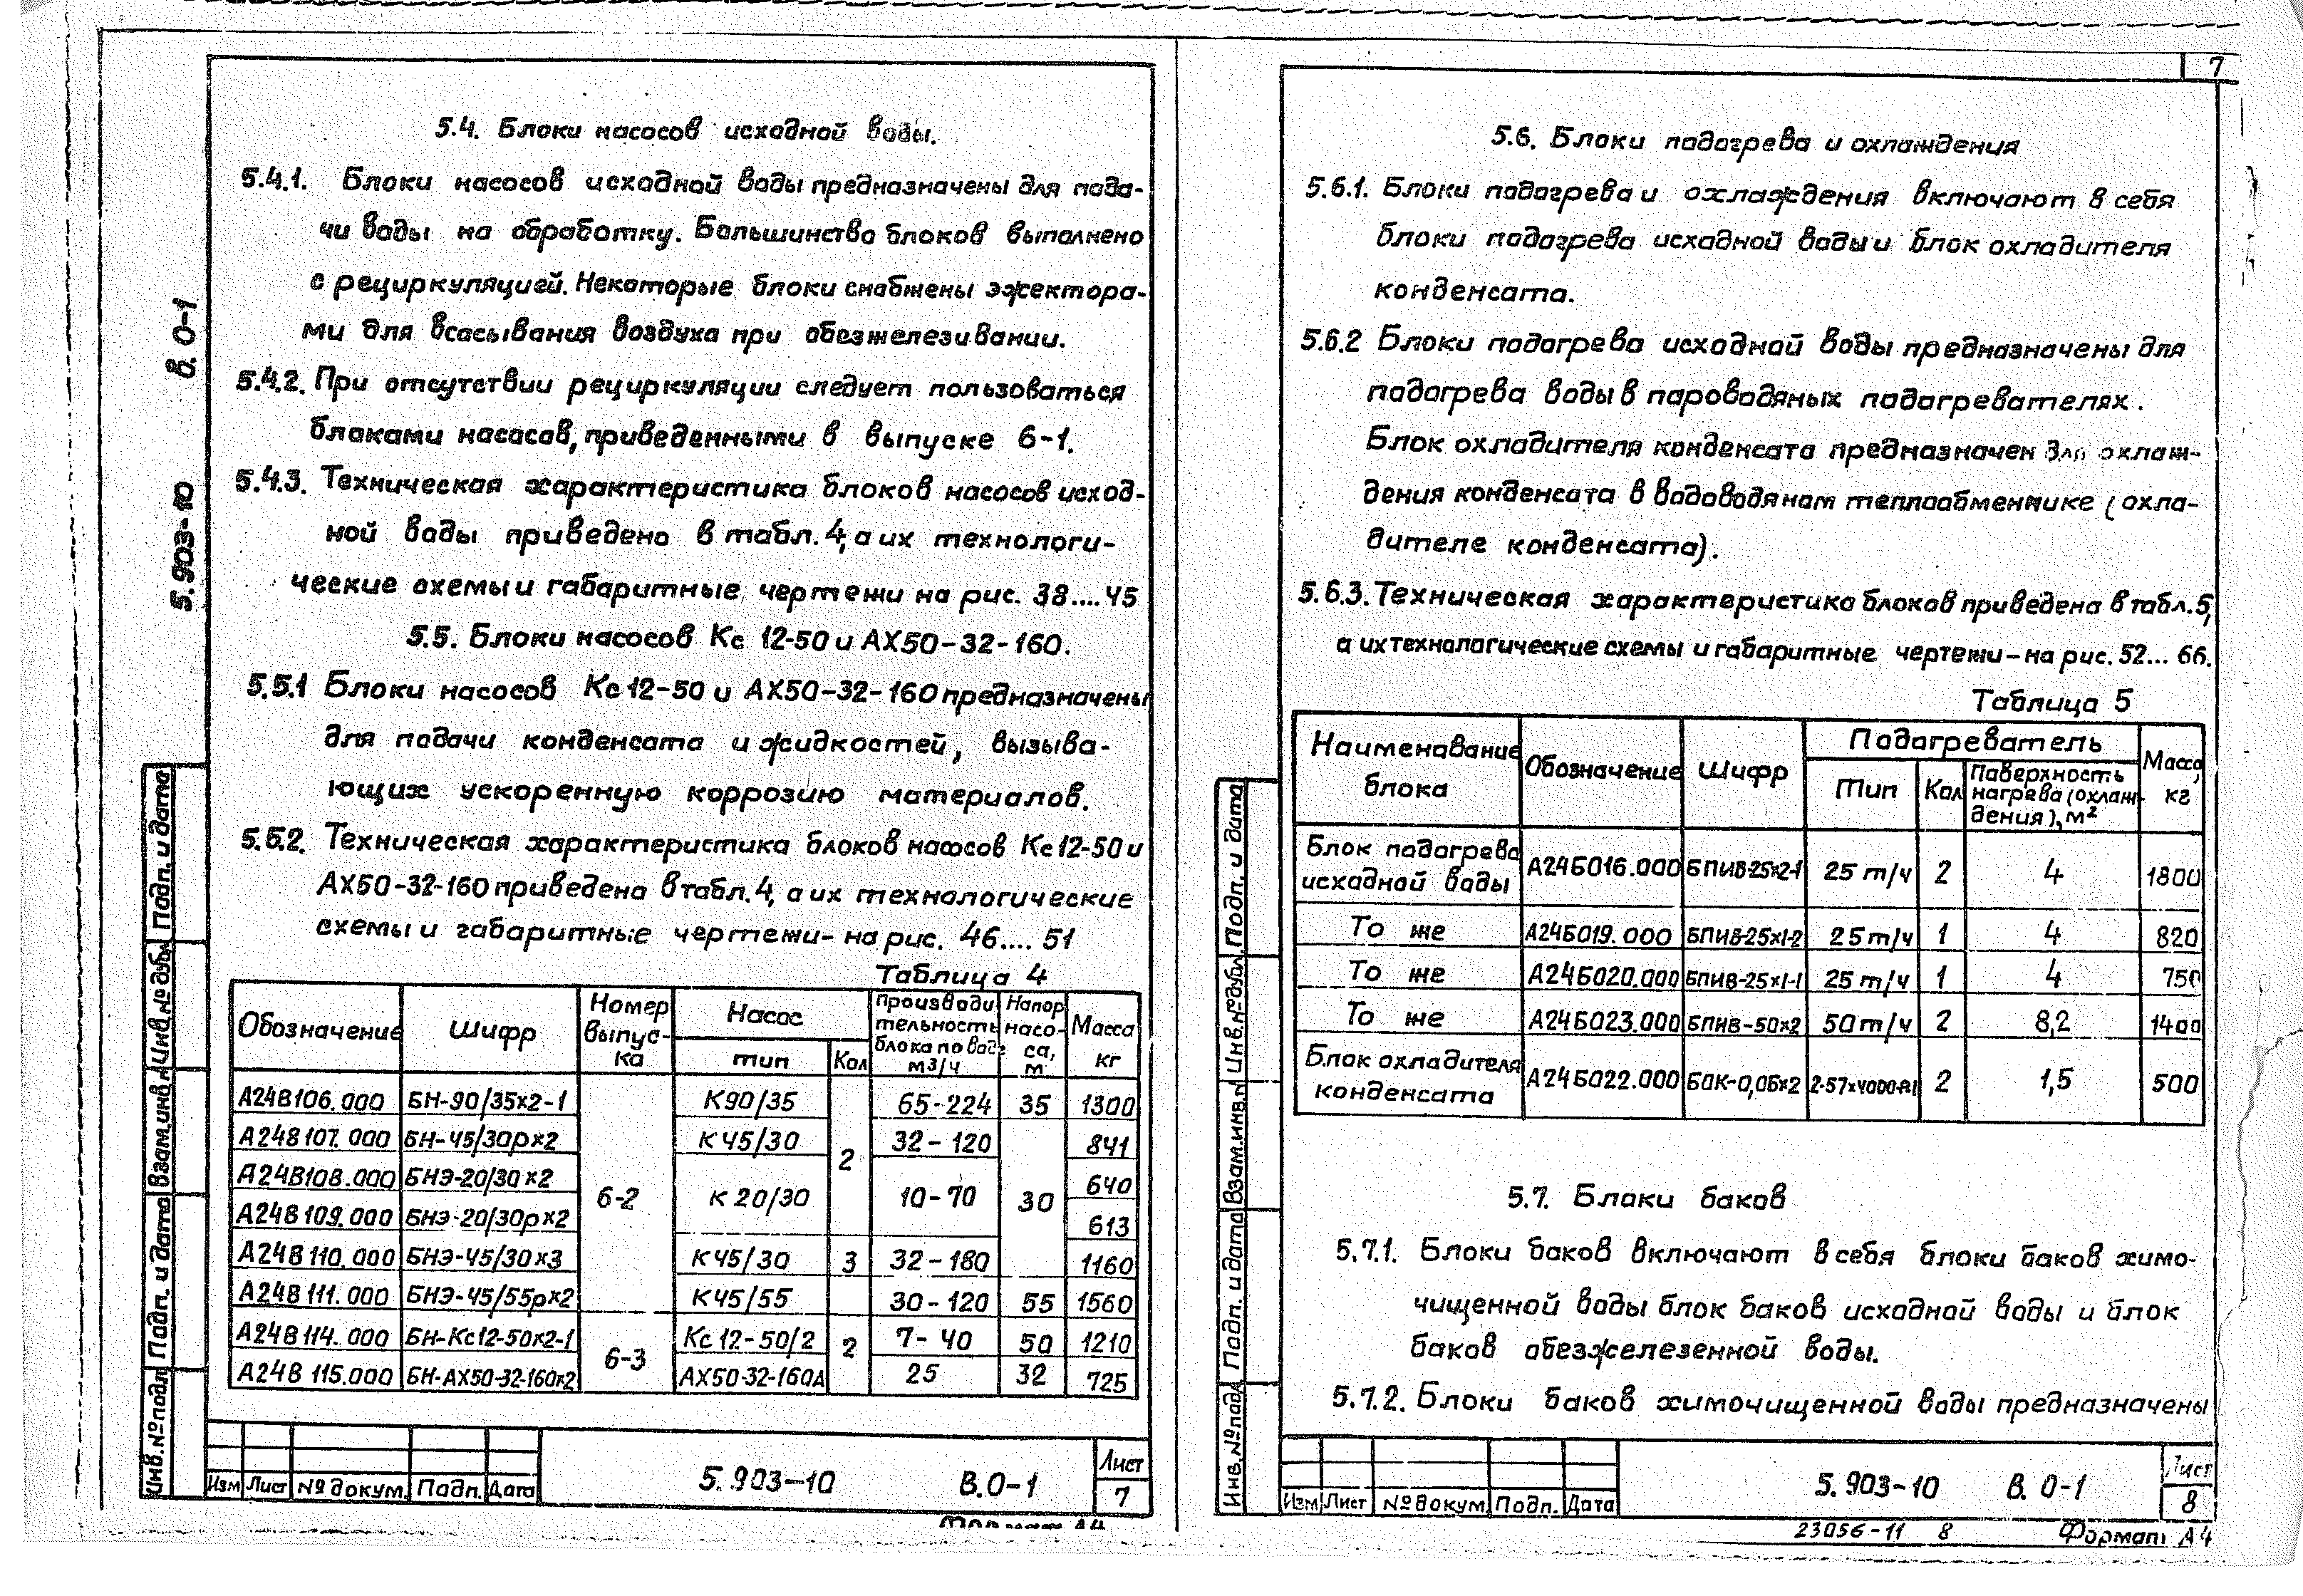 7
5.4. Блоки насосов исходной воды.
5.4.1. Блоки насосов исходной воды предназначены для пода-
чи воды на обработку. Большинство блоков выполнено
с рециркуляцией. Некоторые блоки снабжены эжектора-
ми для всасывания воздуха при обезжелезивании.
5.4.2. При отсутствии рециркуляции следует пользоваться
блоками насосов, приведенными в выпуске 6-1.
5.4.3. Техническая характеристика блоков насосов исход-
ной воды приведено в табл. 4, а их технологи-
ческие схемы и габаритные чертежи на рис. 38....45
5.5. Блоки насосов Кс 12-50 и АХ50-32-160.
5.5.1 Блоки насосов Кс 12-50 и АХ50-32-160 предназначены
для подачи конденсата и жидкостей, вызыва-
ющих ускоренную коррозию материалов.
5.5.2. Техническая характеристика блоков насосов Кс12-50 и
АХ50-32-160 приведена в табл. 4, а их технологические
схемы и габаритные чертежи- на рис. 46.... 51
Таблица 4
Обозначение Шифр Номер выпус-ка Насос тип Кол Производи-тельность блока по воде м3/ч Напор насо-са, м Масса кг
А24В106.000 БН-90/35х2-1 6-2 К90/35 2 65-224 35 1300
А24В107.000 БН-45/30рх2 К45/30 32-120 30 841
А24В108.000 БНЭ-20/30х2 К 20/30 10-70 640
А24В109.000 БНЭ-20/30рх2 613
А24В110.000 БНЭ-45/30х3 К45/30 3 32-180 1160
А24В111.000 БНЭ-45/55рх2 К45/55 2 30-120 55 1560
А24В114.000 БН-Кс12-50х2-1 6-3 Кс 12-50/2 7-40 50 1210
А24В115.000 БН-АХ50-32-160х2 АХ50-32-160А 25 32 725
5.903-10 В. 0-1
Подп. и дата
Инв.№ дубл
Взам.инв.№
Подп. и дата
Инв.№ подл
Изм Лист № докум. Подп. Дата
5.903-10 В.0-1
Лист
7
Формат А4
5.6. Блоки подогрева и охлаждения
5.6.1. Блоки подогрева и охлаждения включают в себя
блоки подогрева исходной воды и блок охладителя
конденсата.
5.6.2 Блоки подогрева исходной воды предназначены для
подогрева воды в пароводяных подогревателях.
Блок охладителя конденсата предназначен для охлаж-
дения конденсата в водоводяном теплообменнике (охла-
дителе конденсата).
5.6.3. Техническая характеристика блоков приведена в табл. 5,
а их технологические схемы и габаритные чертежи - на рис. 52... 66.
Таблица 5
Наименование блока Обозначение Шифр Подогреватель Тип Кол Поверхность нагрева (охлаж-дения), м² Масса, кг
Блок подогрева исходной воды А24Б016.000 БПИВ-25х2-1 25 т/ч 2 4 1800
То же А24Б019.000 БПИВ-25х1-2 25т/ч 1 4 820
То же А24Б020.000 БПИВ-25х1-1 25т/ч 1 4 750
То же А24Б023.000 БПИВ-50х2 50т/ч 2 8,2 1400
Блок охладителя конденсата А24Б022.000 БОК-0,06х2 2-57х4000-Р-1 2 1,5 500
5.7. Блоки баков
5.7.1. Блоки баков включают в себя блоки баков химо-
чищенной воды блок баков исходной воды и блок
баков обезжелезенной воды.
5.7.2. Блоки баков химочищенной воды предназначены
Подп. и дата
Инв.№ дубл.
Взам.инв.№
Подп. и дата
Инв.№ подл
Изм Лист № докум. Подп. Дата
5.903-10 В. 0-1
Лист
8
23056-11 8
Формат А4